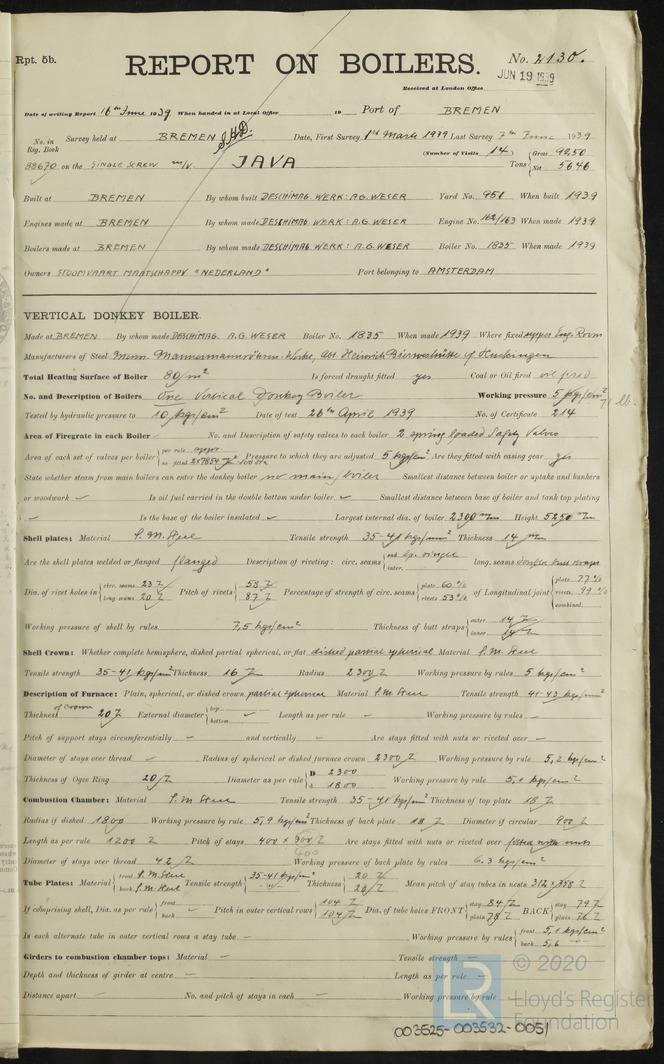 Rpt. 5b.
REPORT ON BOILERS.
No. 2130.
JUN 19 1939
Received at London Office
Date of writing Report 16th June 1939 When handed in at Local Office 19 Port of BREMEN
No. in Reg. Book Survey held at BREMEN Date, First Survey 1st March 1939 Last Survey 7th June 1939
(Number of Visits 14)
88670 on the SINGLE SCREW M/V JAVA Tons { Gross 9250 Net 5646
Built at BREMEN By whom built DESCHIMAG. WERK: A.G. WESER Yard No. 951 When built 1939
Engines made at BREMEN By whom made DESCHIMAG. WERK: A.G. WESER Engine No. 162/163 When made 1939
Boilers made at BREMEN By whom made DESCHIMAG. WERK: A.G. WESER Boiler No. 1835 When made 1939
Owners STOOMVAART MAATSCHAPPY "NEDERLAND" Port belonging to AMSTERDAM
VERTICAL DONKEY BOILER.
Made at BREMEN By whom made DESCHIMAG. A.G. WESER Boiler No. 1835 When made 1939 Where fixed upper Eng. Room
Manufacturers of Steel Mannesmannröhren-Werke, Abt. Heinrich Bierwes hütte of Huckingen
Total Heating Surface of Boiler 80 m² Is forced draught fitted yes Coal or Oil fired oil fired
No. and Description of Boilers One Vertical Donkey Boiler Working pressure 5 kgs/cm² 71 lb.
Tested by hydraulic pressure to 10 kgs/cm² Date of test 26th April 1939 No. of Certificate 214
Area of Firegrate in each Boiler No. and Description of safety valves to each boiler 2 spring loaded Safety Valves
Area of each set of valves per boiler { per rule as fitted Pressure to which they are adjusted 5 kgs/cm² Are they fitted with easing gear yes
State whether steam from main boilers can enter the donkey boiler no main boiler Smallest distance between boiler or uptake and bunkers
or woodwork – Is oil fuel carried in the double bottom under boiler – Smallest distance between base of boiler and tank top plating
– Is the base of the boiler insulated – Largest internal dia. of boiler 2300 m/m Height 5250 m/m
Shell plates: Material S.M. Steel Tensile strength 35-41 kgs/cm² Thickness 14 m/m
Are the shell plates welded or flanged flanged Description of riveting: circ. seams { end lap single inter. long. seams double butt
Dia. of rivet holes in { circ. seams 23 long. seams 20 Pitch of rivets { 58 87 Percentage of strength of circ. seams { plate 60 % rivets 53 % of Longitudinal joint { plate 77 % rivets 99 % combined.
Working pressure of shell by rules 7,5 kgs/cm² Thickness of butt straps { outer 14 inner 14
Shell Crown: Whether complete hemisphere, dished partial spherical, or flat dished partial spherical Material S.M. Steel
Tensile strength 35-41 kgs/cm² Thickness 16 Radius 2300 Working pressure by rules 5 kgs/cm²
Description of Furnace: Plain, spherical, or dished crown partial spherical Material S.M. Steel Tensile strength 41-43 kgs/mm²
Thickness of Crown 20 External diameter { top bottom – Length as per rule – Working pressure by rules –
Pitch of support stays circumferentially – and vertically – Are stays fitted with nuts or riveted over –
Diameter of stays over thread – Radius of spherical or dished furnace crown 2300 Working pressure by rule 5,2 kgs/cm²
Thickness of Ogee Ring 20 Diameter as per rule { D 2300 d 1800 Working pressure by rule 5,1 kgs/cm²
Combustion Chamber: Material S.M. Steel Tensile strength 35-41 kgs/cm² Thickness of top plate 18
Radius if dished 1800 Working pressure by rule 5,9 kgs/cm² Thickness of back plate 18 Diameter if circular 900
Length as per rule 1200 Pitch of stays 400 x 300 400 Are stays fitted with nuts or riveted over fitted with nuts
Diameter of stays over thread 42 Working pressure of back plate by rules 6.3 kgs/cm²
Tube Plates: Material { front S.M. Steel back S.M. Steel Tensile strength { 35-41 kgs/cm² Thickness { 20 20 Mean pitch of stay tubes in nests 312 x 358
If comprising shell, Dia. as per rule { front back Pitch in outer vertical rows { 104 104 Dia. of tube holes FRONT { stay 84 plain 78 BACK { stay 79 plain 76
Is each alternate tube in outer vertical rows a stay tube – Working pressure by rules { front 5,1 kgs/cm² back 5,6
Girders to combustion chamber tops: Material – Tensile strength –
Depth and thickness of girder at centre – Length as per rule –
Distance apart – No. and pitch of stays in each – Working pressure by rule –
© 2020
LR
Lloyd's Register
Foundation
003525-003532-0051